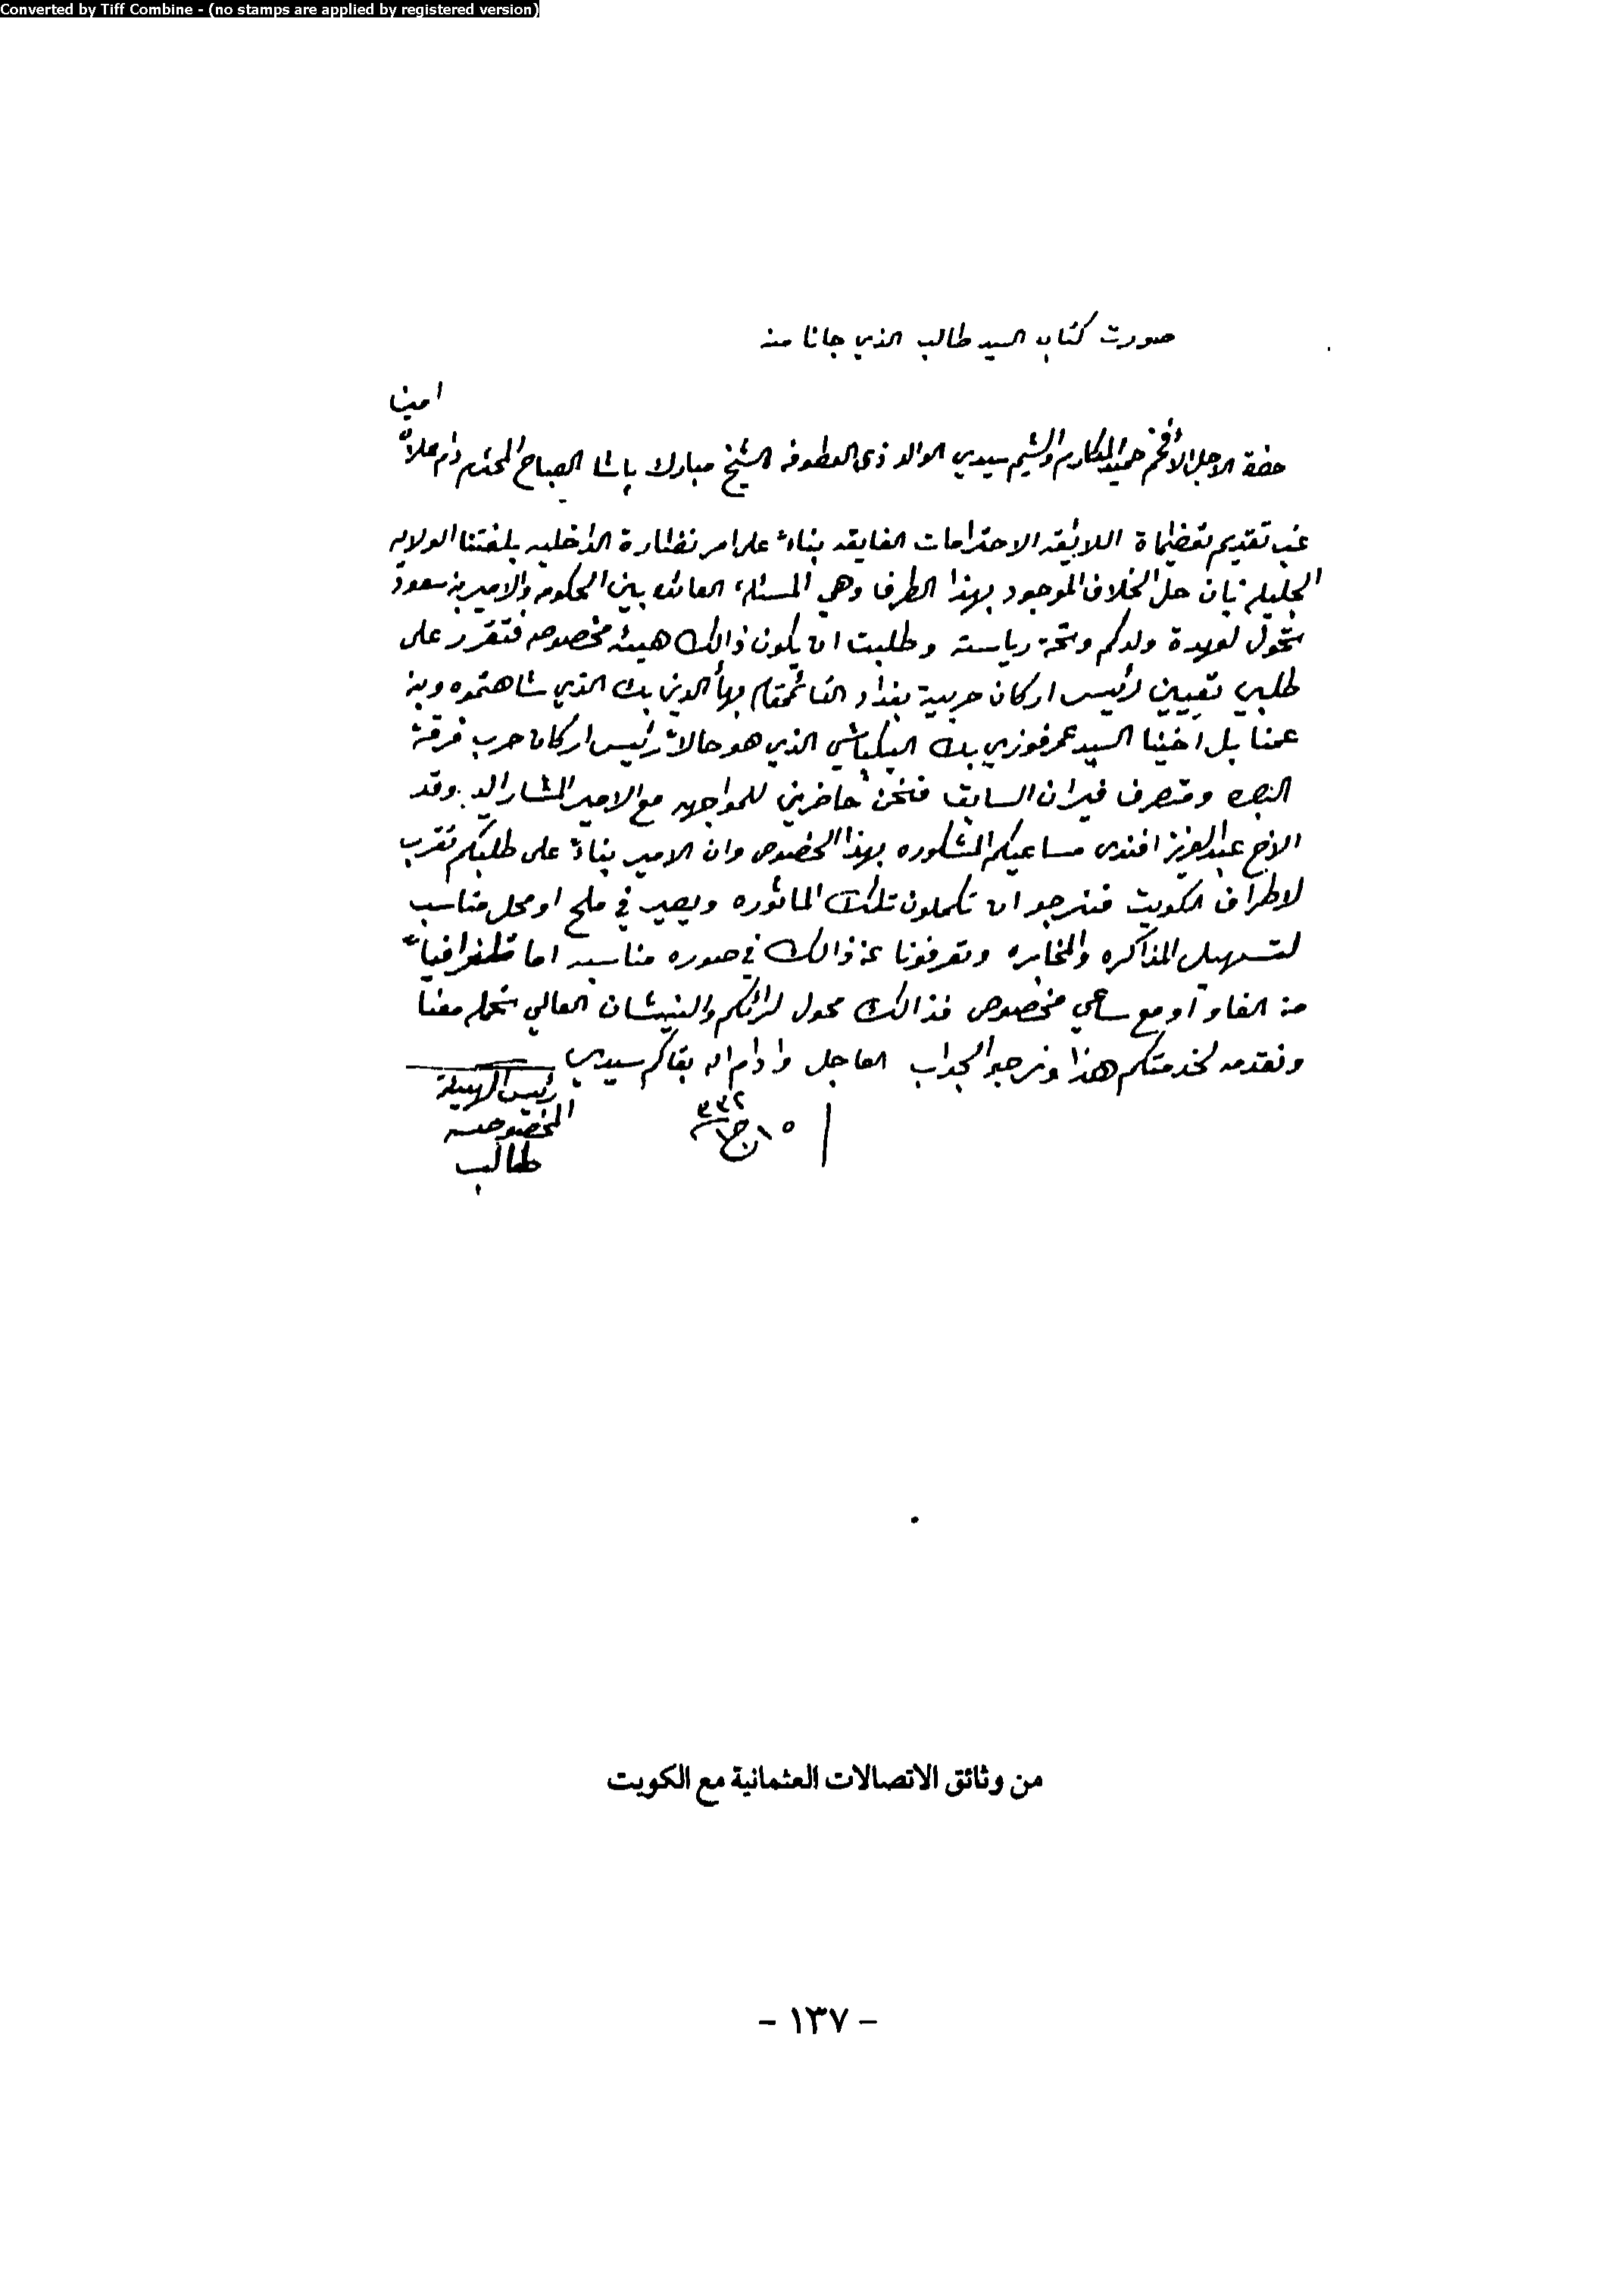 Converted by Tiff Combine - (no stamps are applied by registered version)
صورت كتاب السيد طالب الذي جانا منه
امين
حضرة الاجل الأفخم حميد المكارم والشيم سيدي الوالد ذى العطوفه الشيخ مبارك باشا الصباح المحترم دام علاه
غب تقديم تعضيماة اللايقه الاحترامات الفايقه بناءً على امر نضارة الداخليه بلغتنا الولايه
الجليله بان حل الخلاف الموجود بهذا الطرف وهي المسئلة العائده بين الحكومه والامير بن سعود
تحول لعهدة ولدكم وتحة رياسته وطلبت ان يكون ذالك هيئه مخصوصه فتقرر على
طلبي تعيين رئيس اركان حربية بغداد القائمقام بهاالدين بك الذي شاهتموه وبن
عمنا بل اخينا السيد عمر فوزي بك البيكباشي الذي هو حالاً رئيس اركان حرب فرقة
البصره ومتصرف السابق فنحن حاضرين للمواجهه مع الامير المشار اليه. وقد
الاخ عبدالعزيز افندى مساعيكم المشكوره بهذا الخصوص وان الامير بناءً على طلبكم تقرب
لاطراف الكويت فنرجو ان تكملون تلك الماثوره ويصير في ملح او محل مناسب
لتسهيل المذاكره والمخابره وتعرفونا عن ذالك في صوره مناسبه اما تلغرافياً
من الفاو او مع ساعي مخصوص فذالك محول لرائكم والنيشان العالي نحمله معنا
ونقدمه لخدمتكم هذا ونرجو الجواب العاجل وادام اله بقاكم سيدي
رئيس الهيئة
المخصوصه
طالب
١٥ ج ٣٣٢
من وثائق الاتصالات العثمانية مع الكويت
- ١٣٧ -